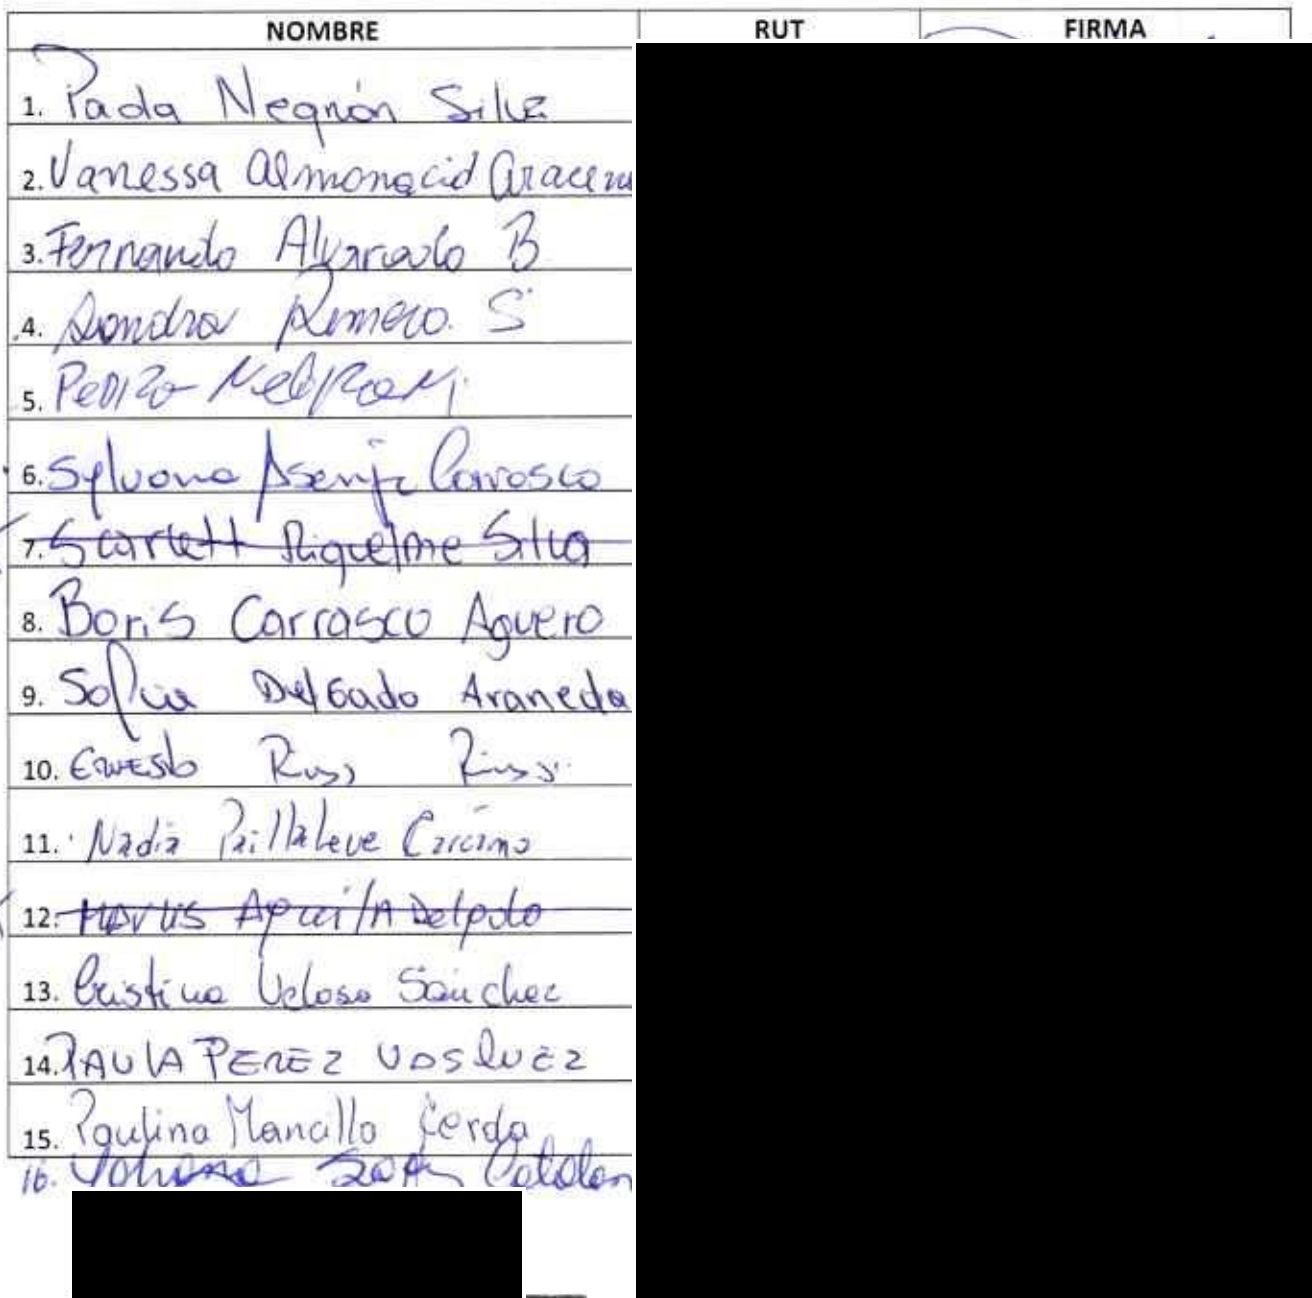 NOMBRE RUT FIRMA
1. Paola Negrón Silva
2. Vanessa Almonacid
3. Fernando Alvarado B
4. Sandra Romero. S
5. Pedro
6. Sylvana Asenjo Carrasco
7. Scarlett Riquelme Silva
8. Boris Carrasco Aguero
9. Sofia Delgado Araneda
10. Ernesto
11. Nadia Paillaleve Cárcamo
12. Aguila Delgado
13. Cristina Veloso Sánchez
14. PAULA PEREZ VASQUEZ
15. Paulina Mancilla Cerda
16. Catalan